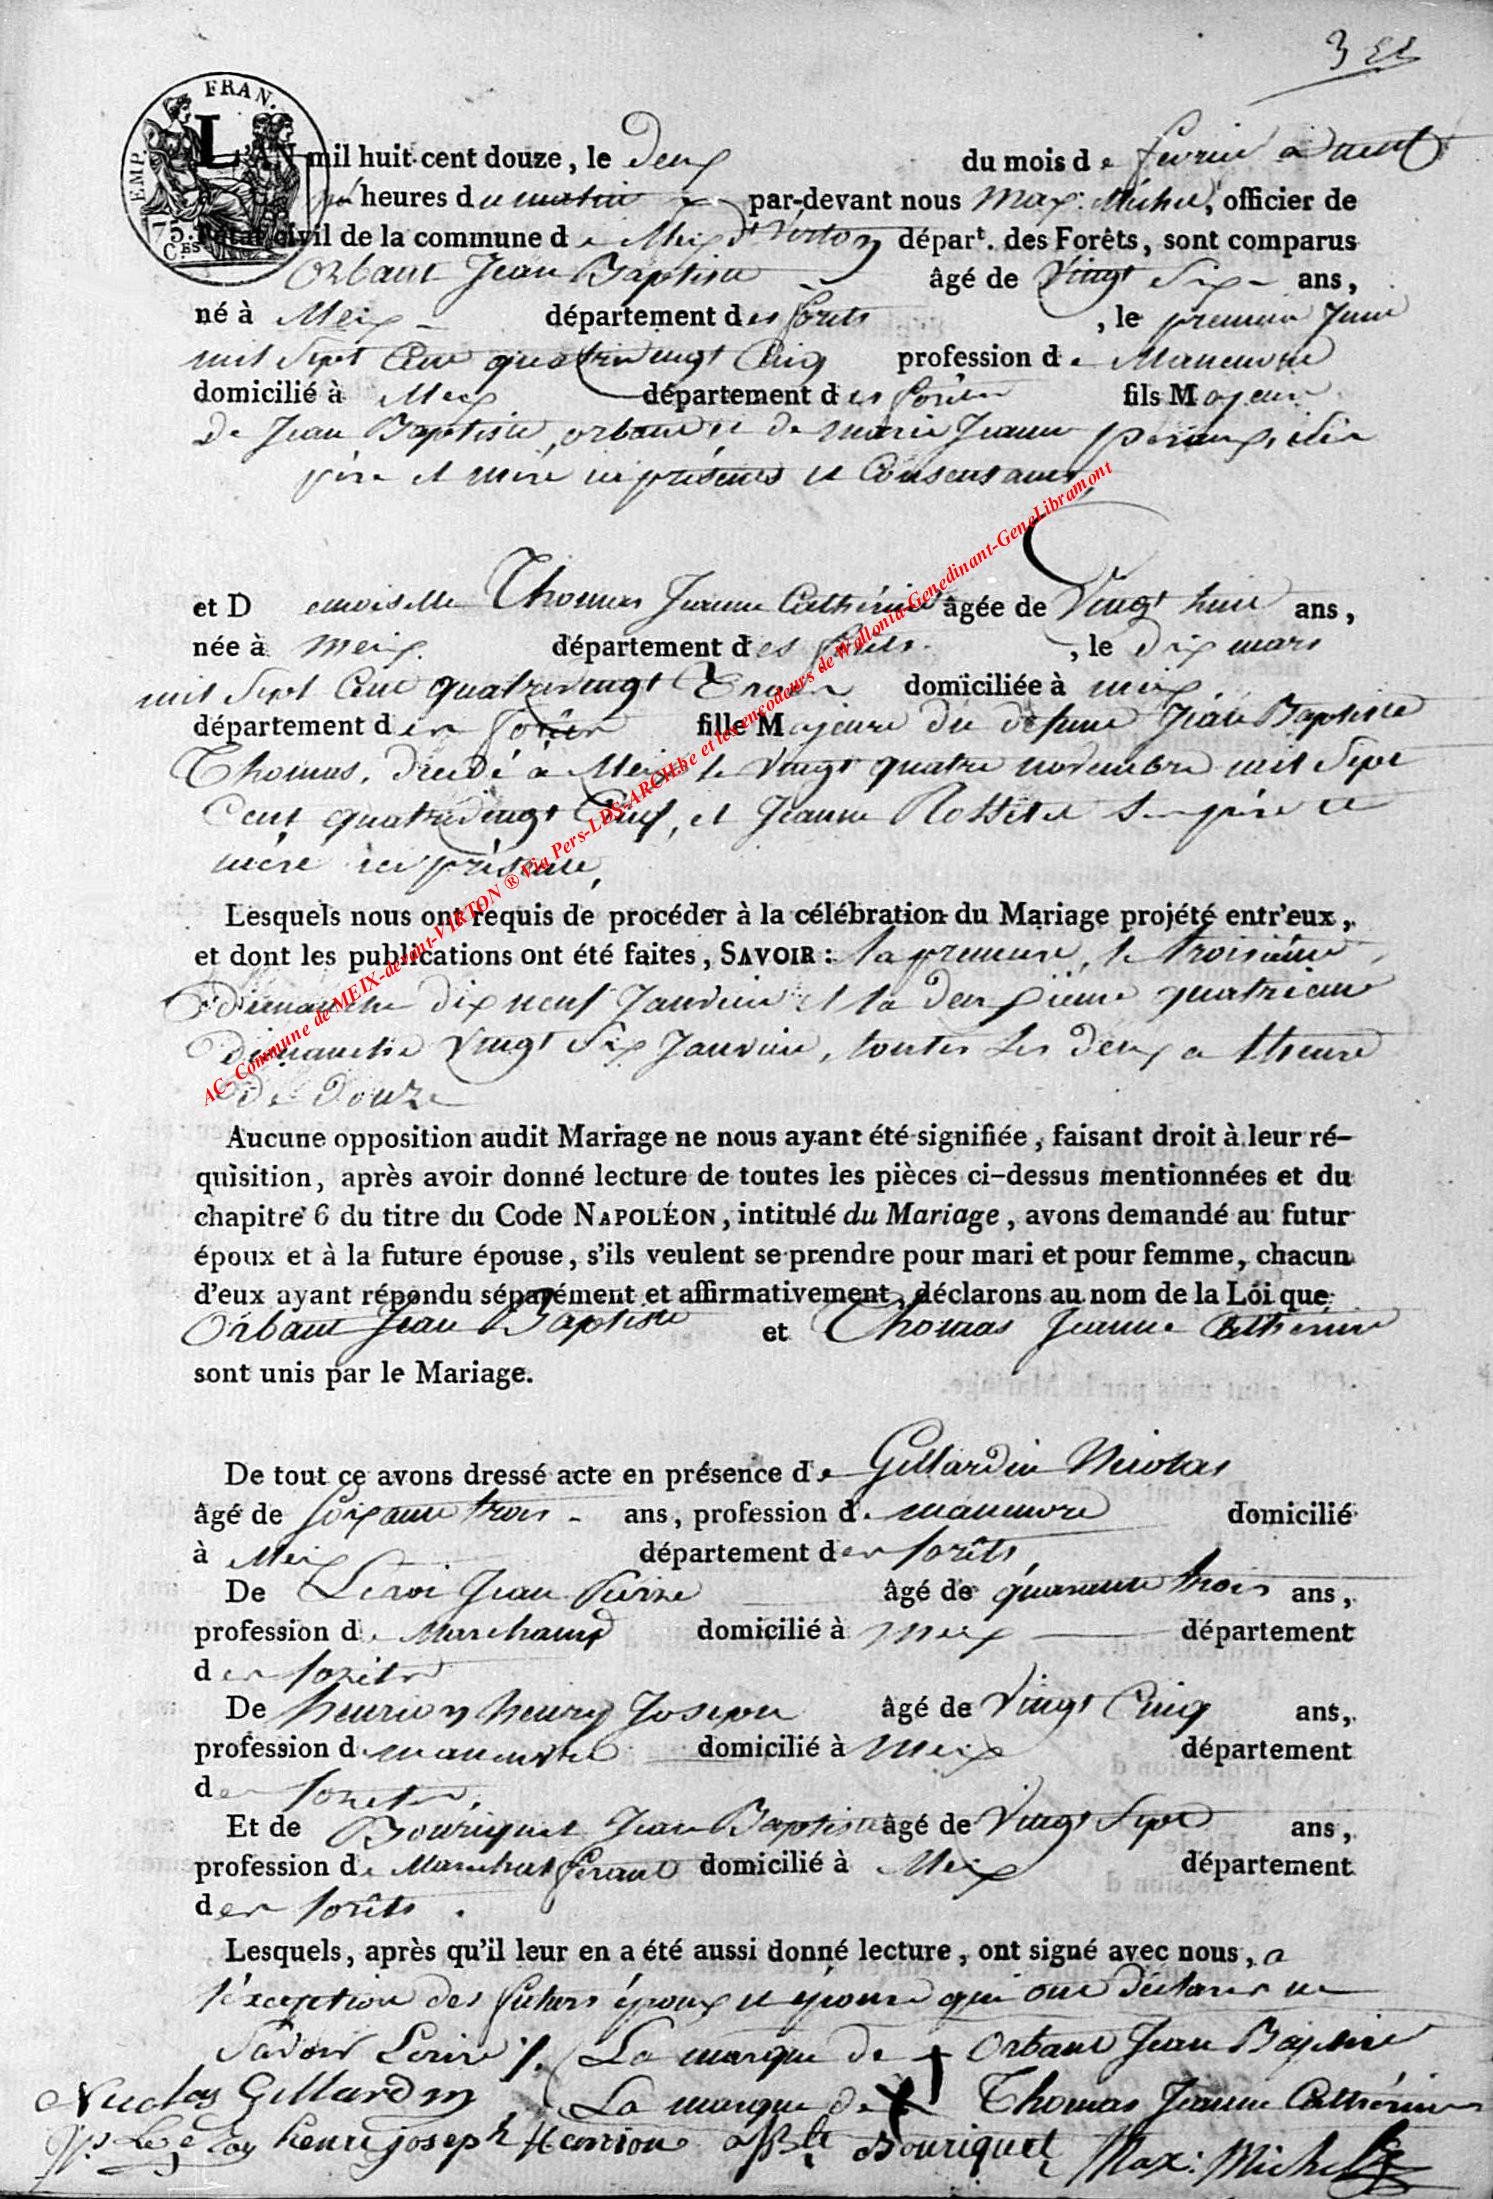 3
EMP. FRAN.
75. Ces
L'AN mil huit cent douze, le deux du mois de fevrier à neuf
heures du matin par-devant nous Max: Michel, officier de
l'état civil de la commune de Meix dt Virton départt. des Forêts, sont comparus
Orbant Jean Baptiste âgé de vingt six ans,
né à Meix département des forets, le premier Juin
mil Sept Cent quatrevingt Cinq profession de Maneuvre
domicilié à Meix département des forets fils Majeur
de Jean Baptiste orbant et de marie Jeanne
père et mère ici présents et Consentants,
et Demoiselle Thomas Jeanne Cathérine âgée de Vingt huit ans,
née à Meix département des forets, le dix mars
mil Sept Cent quatrevingt trois domiciliée à meix
département des forets fille Majeure du défunt Jean Baptiste
Thomas, décédé à Meix le vingt quatre novembre mil Sept
Cent quatrevingt Cinq, et Jeanne Rossion Son père et
mère ici présente,
Lesquels nous ont requis de procéder à la célébration du Mariage projété entr'eux,
et dont les publications ont été faites, SAVOIR: la premiere, le troisième
dimanche dix neuf Janvier et la deuxieme quatrieme
dimanche vingt Six Janvier, toutes les deux a l'heure
de douze
Aucune opposition audit Mariage ne nous ayant été signifiée, faisant droit à leur ré-
quisition, après avoir donné lecture de toutes les pièces ci-dessus mentionnées et du
chapitre 6 du titre du Code NAPOLÉON, intitulé du Mariage, avons demandé au futur
époux et à la future épouse, s'ils veulent se prendre pour mari et pour femme, chacun
d'eux ayant répondu séparément et affirmativement, déclarons au nom de la Loi que
Orbant Jean Baptiste et Thomas Jeanne Cathérine
sont unis par le Mariage.
De tout ce avons dressé acte en présence de Gillardin Nicolas
âgé de soixante trois ans, profession de maneuvre domicilié
à Meix département des forêts,
De Leroi Jean Pierre âgé de quarante trois ans,
profession de Marchand domicilié à Meix département
des forêts
De henrion henry Joseph âgé de Vingt Cinq ans,
profession de maneuvre domicilié à Meix département
des forets,
Et de Bouriquet Jean Baptiste âgé de Vingt Sept ans,
profession de Marechal férant domicilié à Meix département
des forêts.
Lesquels, après qu'il leur en a été aussi donné lecture, ont signé avec nous, a
l'exception des futurs époux et épouse qui ont déclarer ne
Savoir Ecrire. La marque de + Orbant Jean Baptiste
La marque de X Thomas Jeanne Cathérine
Nicolas Gillardin
henri joseph Henrion Bouriquet Max: Michel
AC- Commune de MEIX-devant-VIRTON ® Via Pers-LDS-ARCH.be et les encodeurs de Wallonia-Genedinant-GeneLibramont